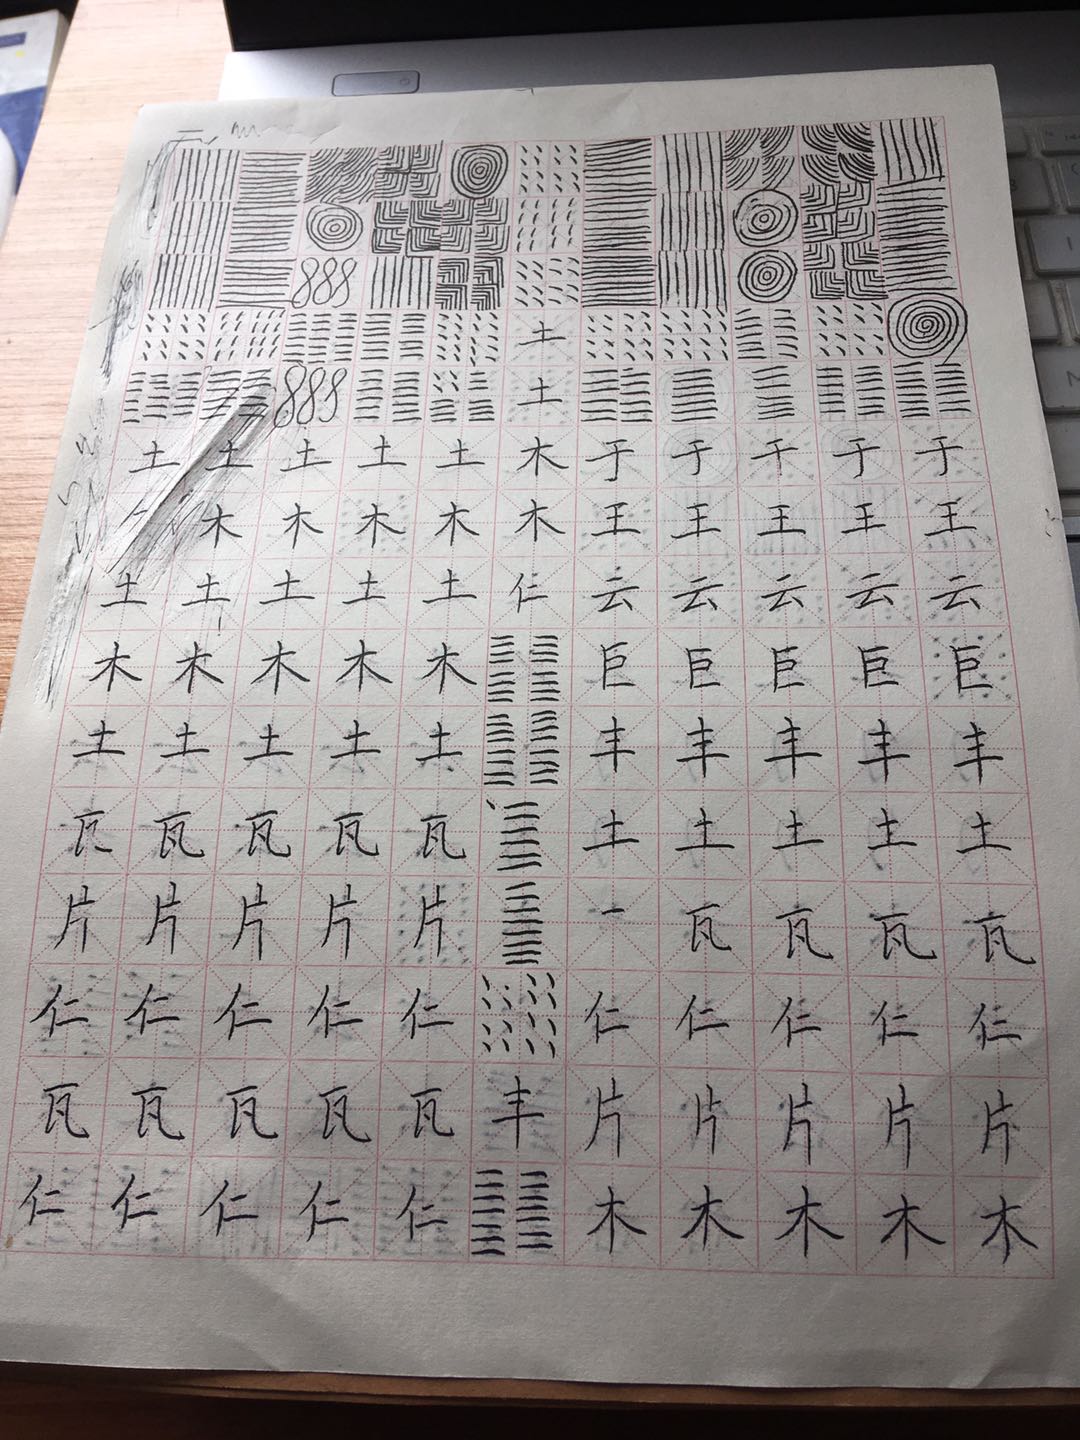 土
土
土 土 土 土 土 木 于 于 于 于 于
木 木 木 木 木 王 王 王 王 王
土 土 土 土 土 仁 云 云 云 云 云
木 木 木 木 木 巨 巨 巨 巨 巨
土 土 土 土 土 丰 丰 丰 丰 丰
瓦 瓦 瓦 瓦 土 土 土 土 土
片 片 片 片 片 一 瓦 瓦 瓦 瓦
仁 仁 仁 仁 仁 仁 仁 仁 仁 仁
瓦 瓦 瓦 瓦 瓦 丰 片 片 片 片 片
仁 仁 仁 仁 仁 木 木 木 木 木